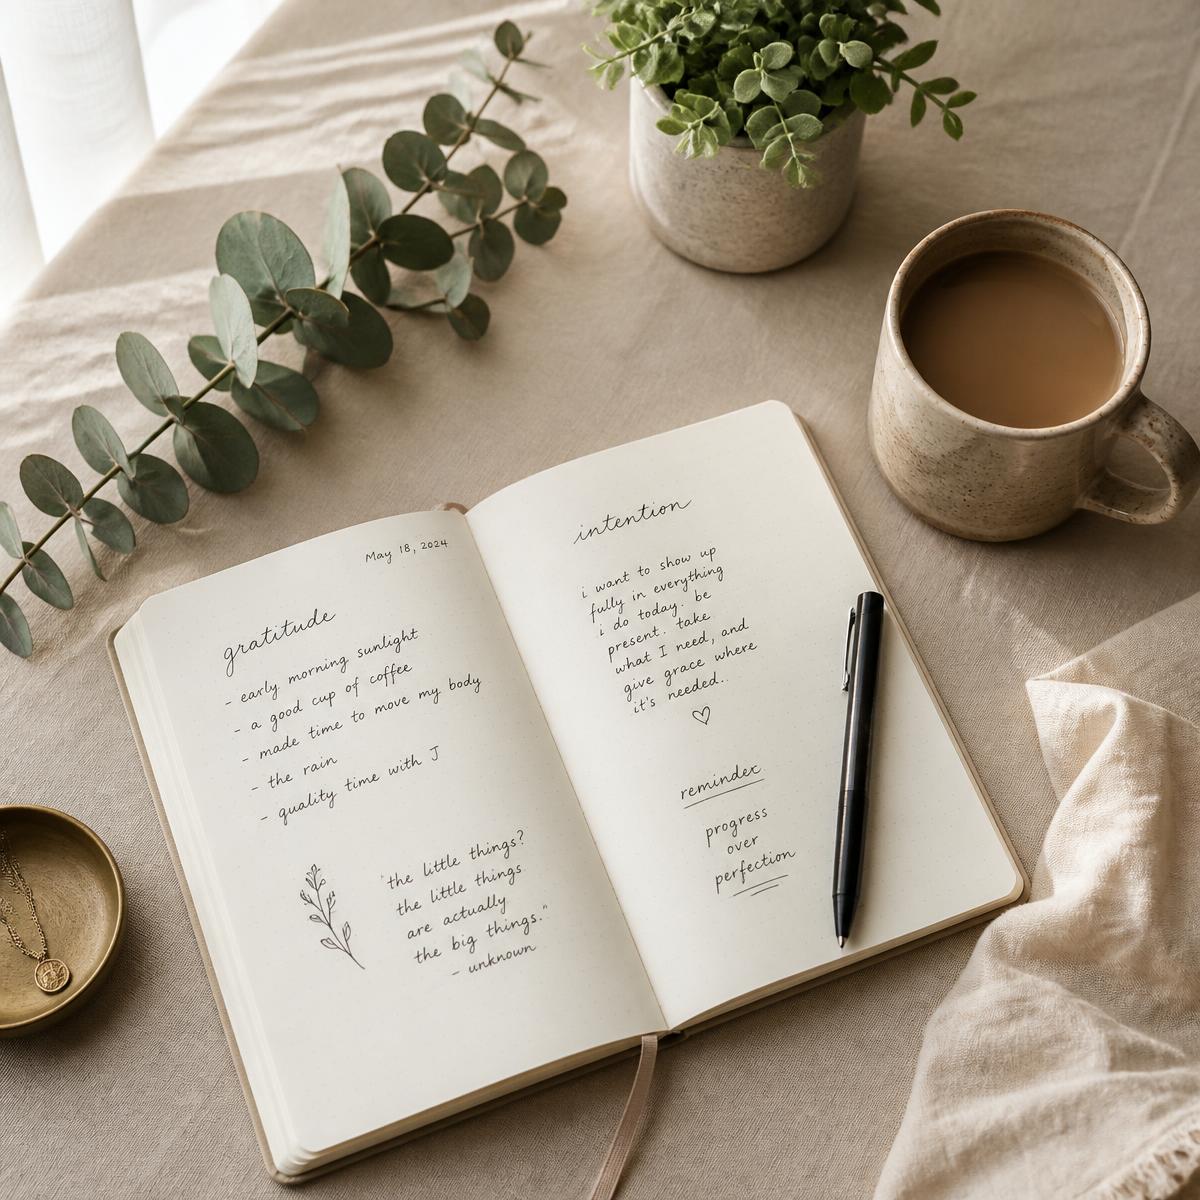 May 18, 2024
gratitude
- early morning sunlight
- a good cup of coffee
- made time to move my body
- the rain
- quality time with J
"the little things?
the little things
are actually
the big things."
- unknown
intention
i want to show up
fully in everything
i do today. be
present. take
what I need, and
give grace where
it's needed.
reminder
progress
over
perfection